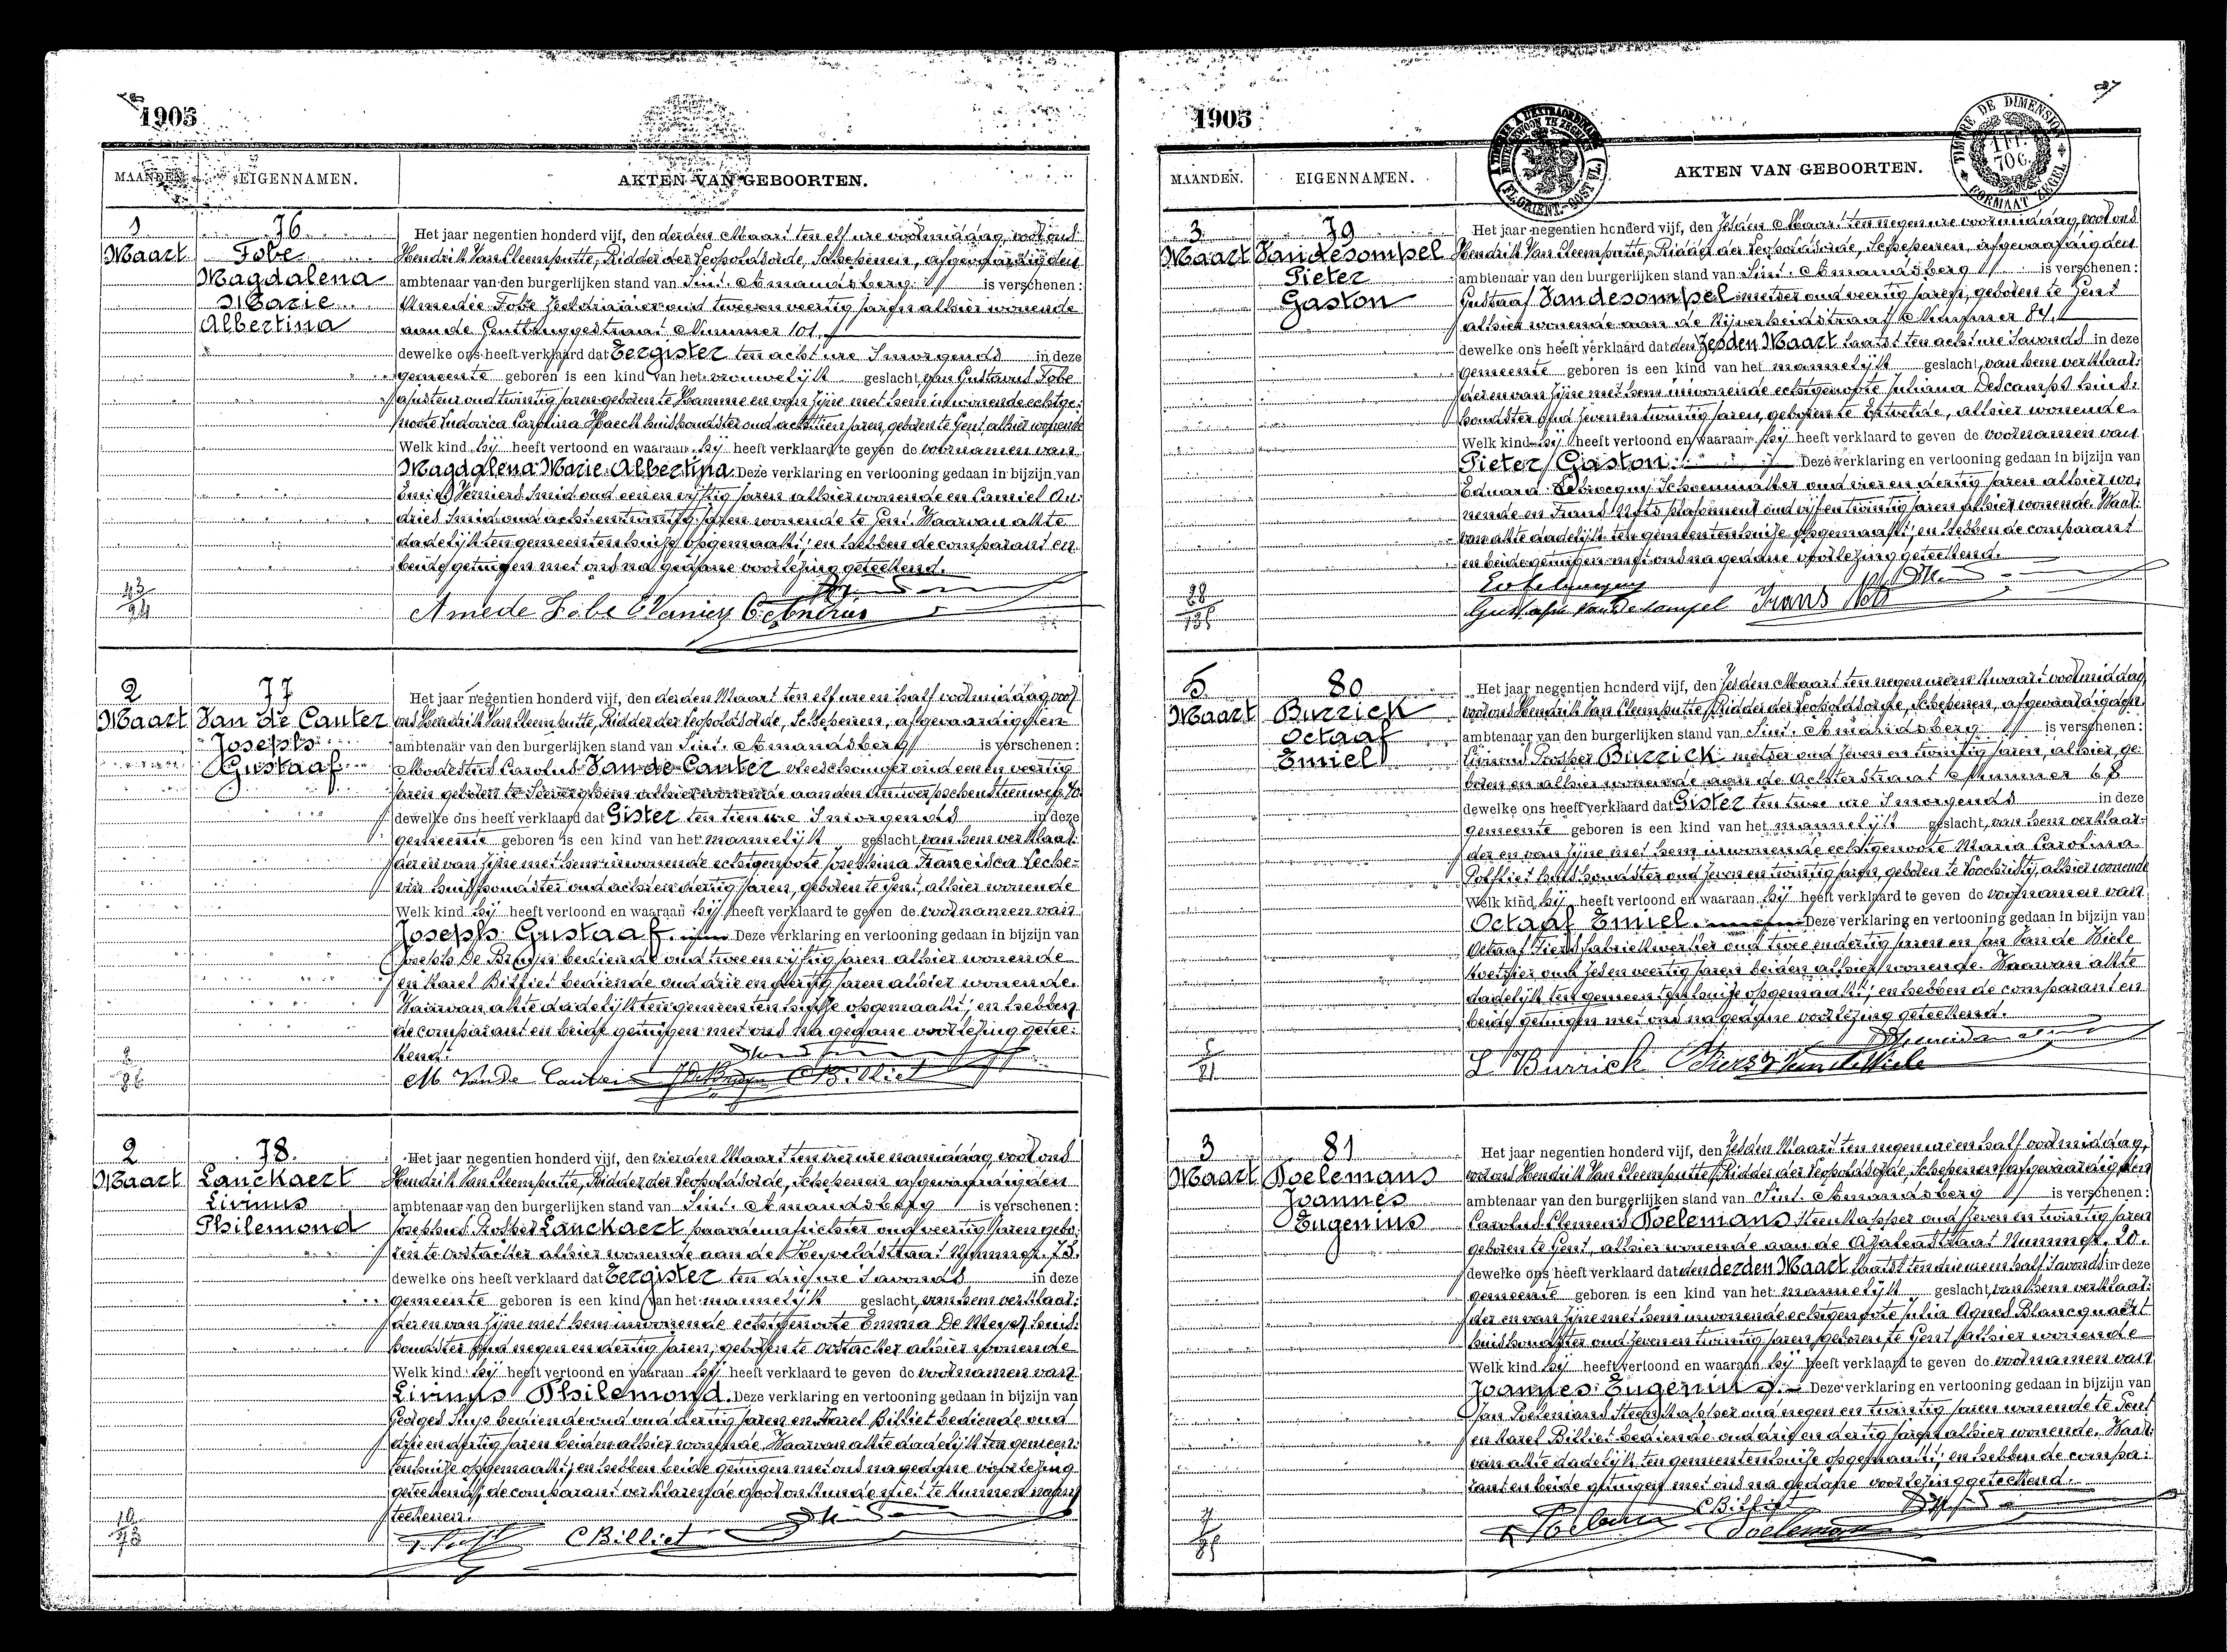 1905
MAANDEN. EIGENNAMEN. AKTEN VAN GEBOORTEN.
1 Maart
76
Fobe
Magdalena
Marie
Albertina
Het jaar negentien honderd vijf, den derden Maart ten elf ure voormiddag, voor ons
Hendrik Van Cleemputte, Ridder der Leopoldsorde, Schepenen, afgevaardigden
ambtenaar van den burgerlijken stand van Sint. Amandsberg is verschenen:
Amedée Fobe oud twee en veertig jaren alhier wonende
aan de Gentbruggestraat Nummer 101.
dewelke ons heeft verklaard dat Eergister ten acht ure Smorgends in deze
gemeente geboren is een kind van het vrouwelijk geslacht, van Gustavus Fobe
ajusteur oud twintig jaren geboren te Hamme en van zijne met hem inwonende echtge:
noote Ludovica Carolina Haeck huishoudster oud achttien jaren, geboren te Gent, alhier wonende
Welk kind hij heeft vertoond en waaraan hij heeft verklaard te geven de voornamen van
Magdalena Marie Albertina Deze verklaring en vertooning gedaan in bijzijn van
Emiel Verniers Smid oud een en vijftig jaren alhier wonende en Camiel An:
dries Smid oud acht en twintig jaren wonende te Gent. Waarvan akte
dadelijk ten gemeentenhuize opgemaakt; en hebben de comparant en
beide getuigen met ons na gedane voorlezing geteekend.
Amede Fobe
2 Maart
77
Van de Canter
Joseph
Gustaaf
Het jaar negentien honderd vijf, den derden Maart ten elf ure en half voormiddag, voor
ons Hendrik Van Cleemputte, Ridder der Leopoldsorde, Schepenen, afgevaardigden
ambtenaar van den burgerlijken stand van Sint. Amandsberg is verschenen:
Modestus Carolus Van de Canter oud een en veertig
jaren geboren te alhier wonende aan den Antwerpschensteenweg 70
dewelke ons heeft verklaard dat Gister ten tien ure Smorgends in deze
gemeente geboren is een kind van het mannelijk geslacht, van hem verklaar:
der en van zijne met hem inwonende echtgenoote Josephina Francisca Leche:
vin huishoudster oud acht en dertig jaren, geboren te Gent, alhier wonende
Welk kind hij heeft vertoond en waaraan hij heeft verklaard te geven de voornamen van
Joseph Gustaaf. Deze verklaring en vertooning gedaan in bijzijn van
Joseph De Bruyn bediende oud twee en vijftig jaren alhier wonende
en Karel Billiet bediende oud drie en dertig jaren alhier wonende.
Waarvan akte dadelijk ten gemeentenhuize opgemaakt; en hebben
de comparant en beide getuigen met ons na gedane voorlezing getee:
kend.
M. Van De Canter J De Bruyn C Billiet
2 Maart
78.
Lanckaert
Livinus
Philemond
Het jaar negentien honderd vijf, den vierden Maart ten vier ure namiddag, voor ons
Hendrik Van Cleemputte, Ridder der Leopoldsorde, Schepenen afgevaardigden
ambtenaar van den burgerlijken stand van Sint. Amandsberg is verschenen:
Josephus Prosper Lanckaert oud veertig jaren gebo:
ren te Oostacker alhier wonende aan de Heyveldstraat Nummer 73.
dewelke ons heeft verklaard dat Eergister ten drie ure Savonds in deze
gemeente geboren is een kind van het mannelijk geslacht, van hem verklaar:
der en van zijne met hem inwonende echtgenoote Emma De Meyer huis:
houdster oud negen en dertig jaren, geboren te Oostacker alhier wonende
Welk kind hij heeft vertoond en waaraan hij heeft verklaard te geven de voornamen van
Livinus Philemond. Deze verklaring en vertooning gedaan in bijzijn van
Georges bediende oud dertig jaren en Karel Billiet bediende oud
drie en dertig jaren beiden alhier wonende. Waarvan akte dadelijk ten gemeen:
tenhuize opgemaakt; en hebben beide getuigen met ons na gedane voorlezing
geteekend, de comparant verklarende door onkunde niet te kunnen
teekenen.
C Billiet
1905
TIMBRE DE DIMENSION
1 FR. 70 C.
FORMAAT ZEGEL
MAANDEN. EIGENNAMEN. AKTEN VAN GEBOORTEN.
3. Maart
79
Vandesompel
Pieter
Gaston
Het jaar negentien honderd vijf, den zesden Maart ten negen ure voormiddag, voor ons
Hendrik Van Cleemputte, Ridder der Leopoldsorde, Schepenen, afgevaardigden
ambtenaar van den burgerlijken stand van Sint. Amandsberg is verschenen:
Gustaaf Vandesompel metser oud veertig jaren, geboren te Gent
alhier wonende aan de Nijverheidstraat Nummer 84.
dewelke ons heeft verklaard dat den Maart laatst ten acht ure Savonds in deze
gemeente geboren is een kind van het mannelijk geslacht, van hem verklaar:
der en van zijne met hem inwonende echtgenoote Juliana Descamps huis:
houdster oud zeven en twintig jaren, geboren te Ertvelde, alhier wonende.
Welk kind hij heeft vertoond en waaraan hij heeft verklaard te geven de voornamen van
Pieter Gaston. Deze verklaring en vertooning gedaan in bijzijn van
Eduard Schoenmaker oud vier en dertig jaren alhier wo:
nende en Frans Nots plafonneur oud vijf en twintig jaren alhier wonende. Waar:
van akte dadelijk ten gemeentenhuize opgemaakt; en hebben de comparant
en beide getuigen met ons na gedane voorlezing geteekend.
Gustaf Van De sompel Frans
5 Maart
80
Burrick
Octaaf
Emiel
Het jaar negentien honderd vijf, den zesden Maart ten negen ure en kwaart voormiddag
voor ons Hendrik Van Cleemputte, Ridder der Leopoldsorde, Schepenen, afgevaardigden
ambtenaar van den burgerlijken stand van Sint. Amandsberg is verschenen:
Livinus Prosper Burrick metser oud zeven en twintig jaren, alhier ge:
boren en alhier wonende aan de Achterstraat Nummer 68
dewelke ons heeft verklaard dat Gister ten twee ure Smorgends in deze
gemeente geboren is een kind van het mannelijk geslacht, van hem verklaar:
der en van zijne met hem inwonende echtgenoote Maria Carolina
Polfliet huishoudster oud zeven en twintig jaren, geboren te Loochristy, alhier wonende
Welk kind hij heeft vertoond en waaraan hij heeft verklaard te geven de voornamen van
Octaaf Emiel. Deze verklaring en vertooning gedaan in bijzijn van
Octaaf Tiers fabriekwerker oud twee en dertig jaren en Jan Van de Wiele
koetsier oud zes en veertig jaren beiden alhier wonende. Waarvan akte
dadelijk ten gemeentenhuize opgemaakt; en hebben de comparant en
beide getuigen met ons na gedane voorlezing geteekend.
L Burrick O Tiers J Van de Wiele
3 Maart
81
Poelemans
Joannes
Eugenius
Het jaar negentien honderd vijf, den zesden Maart ten negen ure en half voormiddag,
voor ons Hendrik Van Cleemputte, Ridder der Leopoldsorde, Schepenen, afgevaardigden
ambtenaar van den burgerlijken stand van Sint. Amandsberg is verschenen:
Carolus Clemens Poelemans steenkapper oud zeven en twintig jaren
geboren te Gent, alhier wonende aan de Azaleastraat Nummer. 20.
dewelke ons heeft verklaard dat den derden Maart laatst ten drie ure en half Savonds in deze
gemeente geboren is een kind van het mannelijk geslacht, van hem verklaar:
der en van zijne met hem inwonende echtgenoote Julia Agnes Blancquaert
huishoudster oud zeven en twintig jaren geboren te Gent alhier wonende
Welk kind hij heeft vertoond en waaraan hij heeft verklaard te geven de voornamen van
Joannes Eugenius. Deze verklaring en vertooning gedaan in bijzijn van
Jan Poelemans Steenkapper oud negen en twintig jaren wonende te Gent
en Karel Billiet bediende oud drie en dertig jaren alhier wonende. Waar:
van akte dadelijk ten gemeentenhuize opgemaakt; en hebben de compa:
rant en beide getuigen met ons na gedane voorlezing geteekend.
C Billiet
Poelemans